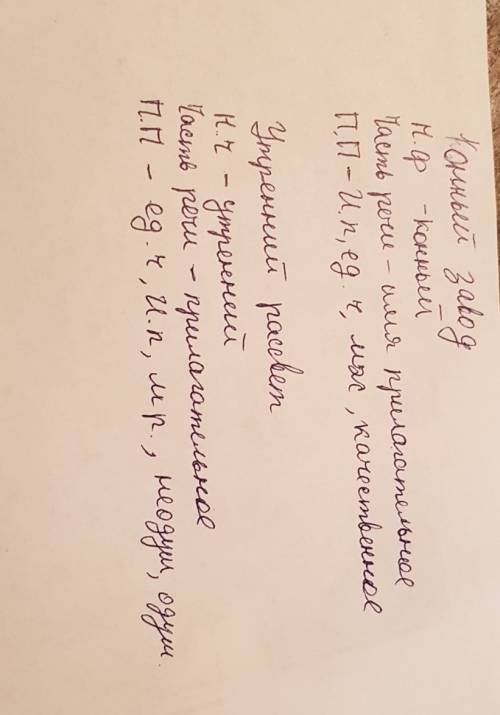 Конный завод
Н.Ф - конный
Часть речи - имя прилагательное
П,П - И.п, ед. ч, м.р , качественное
Утренний рассвет
Н.Ч - утренний
Часть речи - прилагательное
П.П - ед. ч, И.п, м.р., неодуш, одуш.